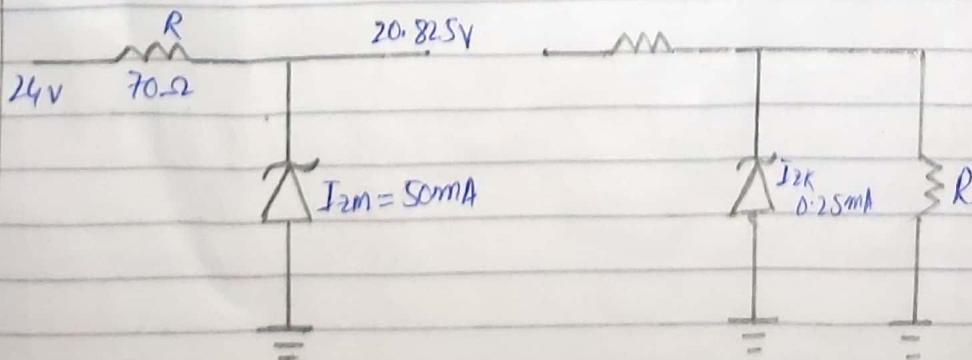 R
20.825V
24V
70Ω
IZM = 50mA
IZK
0.25mA
R